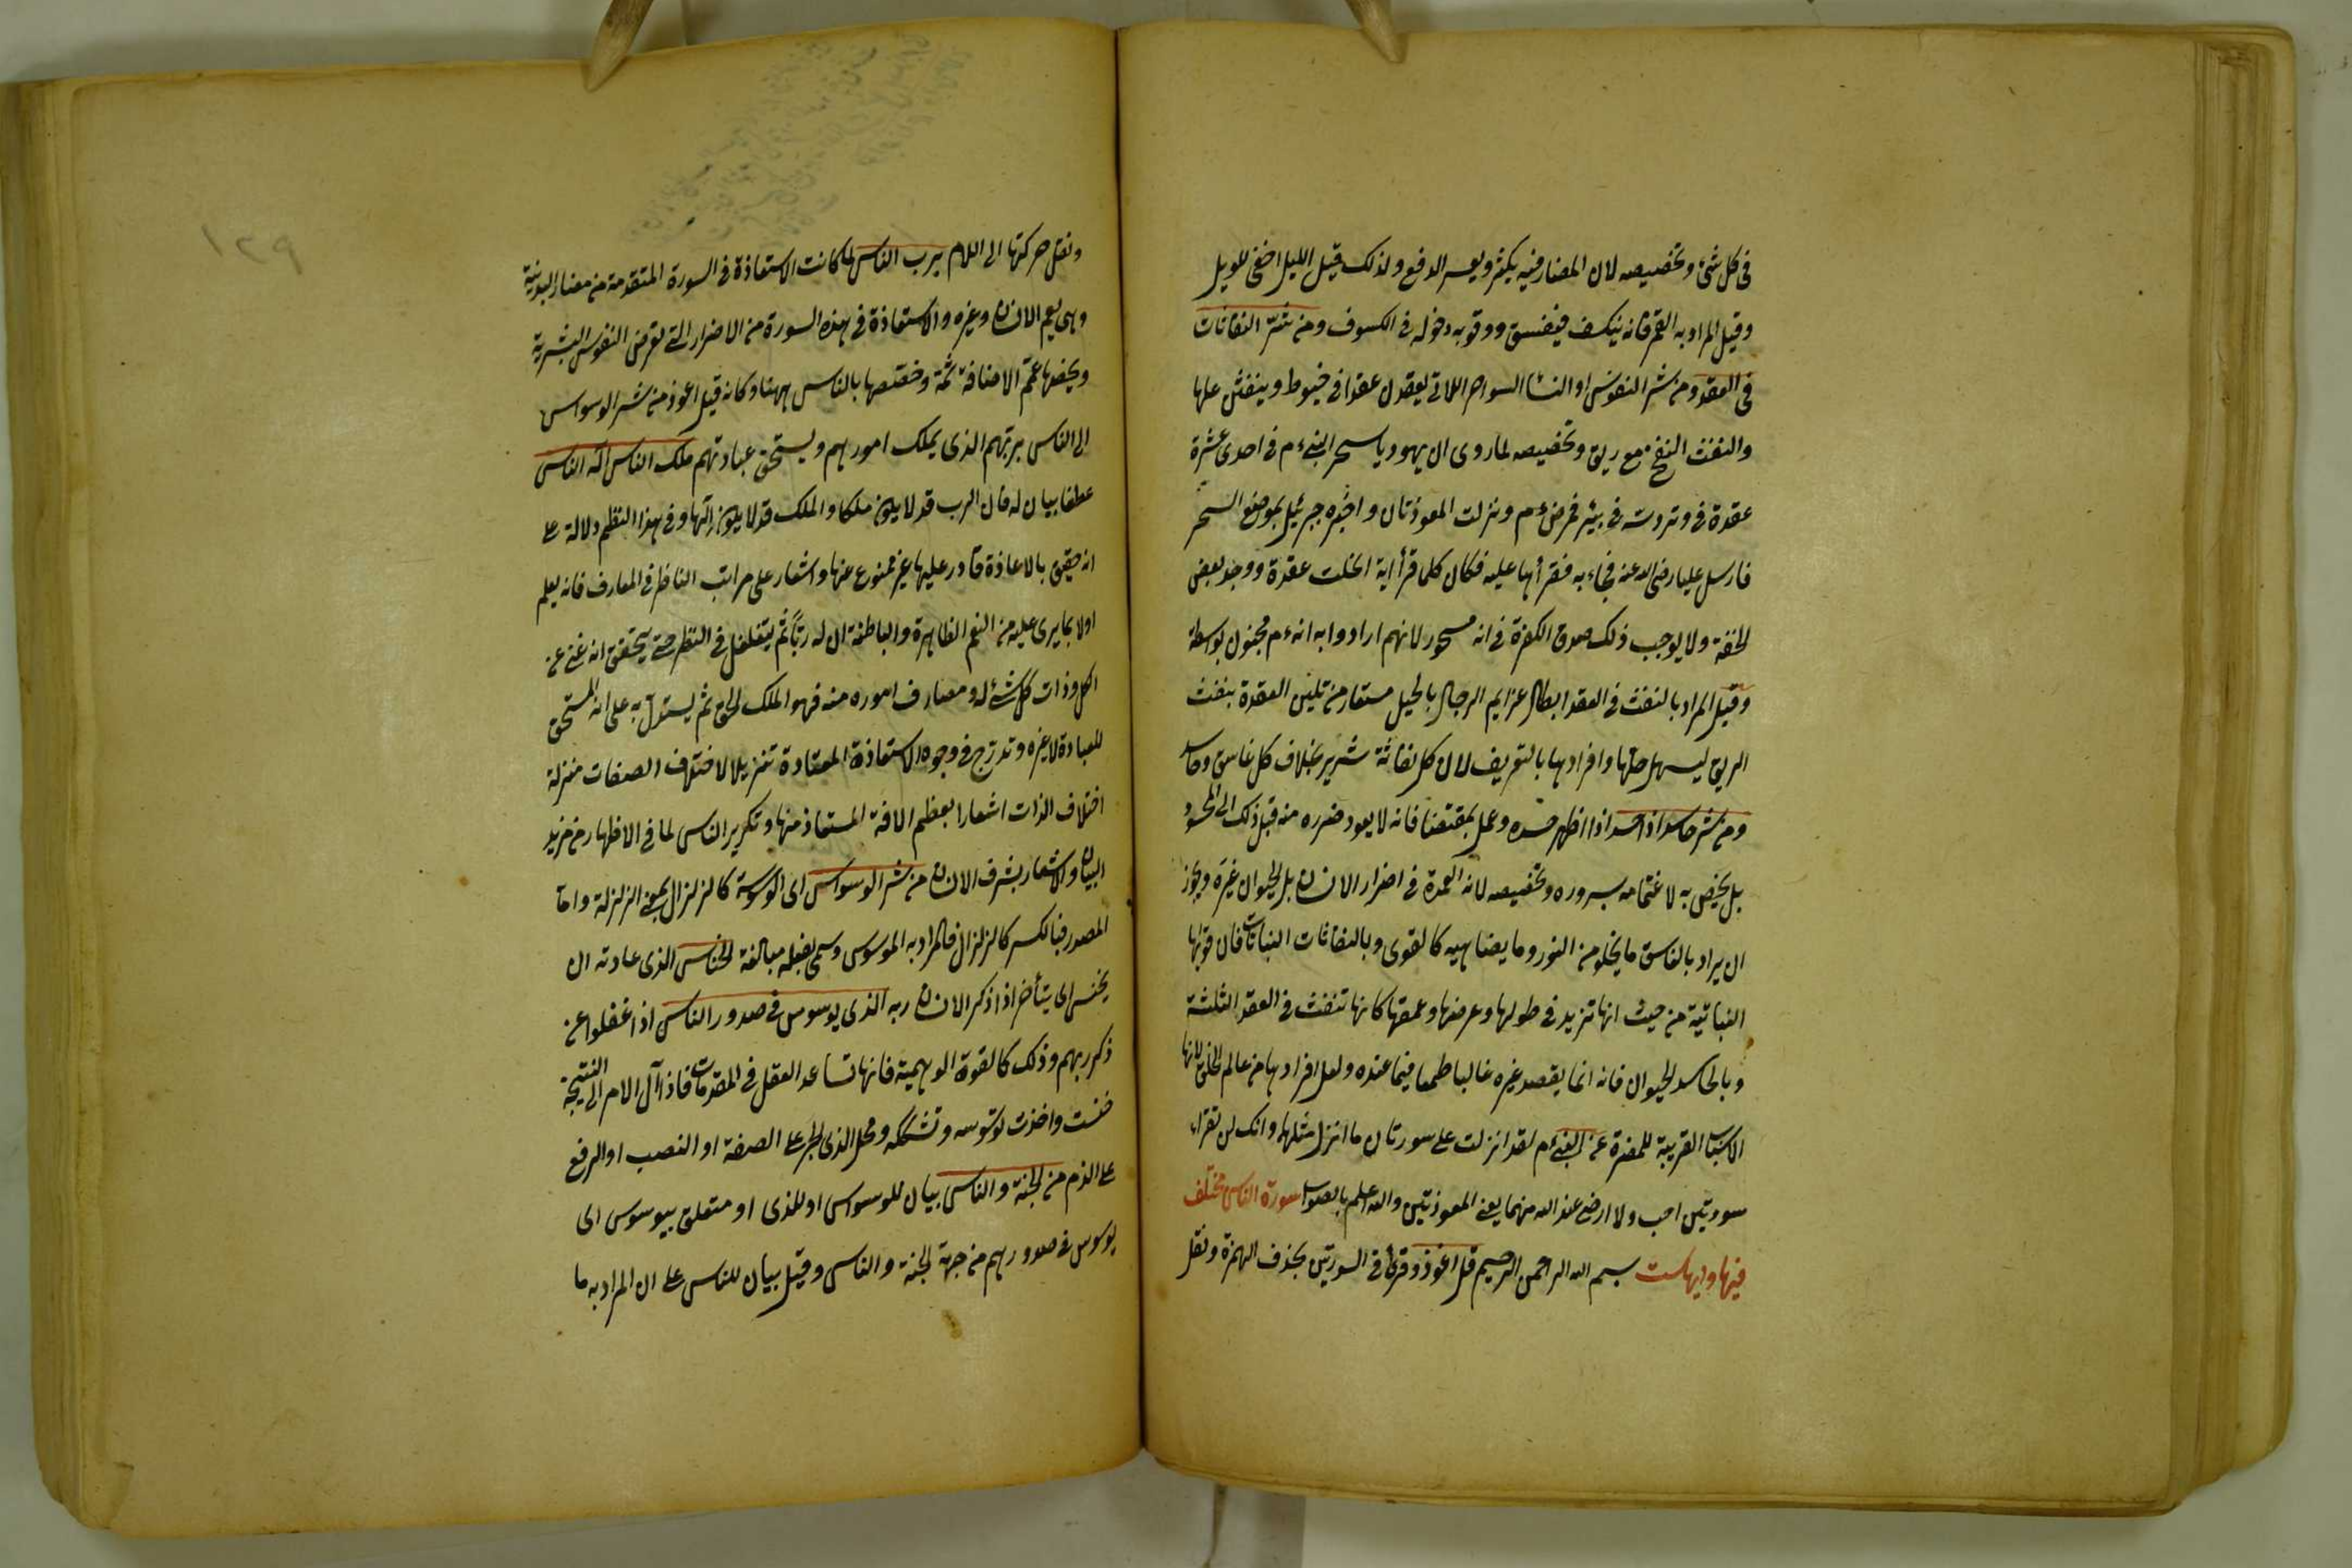 فى كل شئ وتخصيصه لان المضار فيه يكثر ويعسر الدفع ولذلك قيل الليل اخفى للويل
وقيل المراد به القمر فانه يكسف فيغسق ووقوبه دخوله فى الكسوف ومن شر النفاثات
فى العقد ومن شر النفوس او النسا السواحر اللاتى يعقدن عقدا فى خيوط وينفثن عليها
والنفث النفخ مع ريق وتخصيصه لما روى ان يهوديا سحر النبى ءم فى احدى عشرة
عقدة فى وتر دسه فى بئر فمرض ءم ونزلت المعوذتان واخبره جبرئيل بموضع السحر
فارسل عليا رضى الله عنه فجاء به فقرأهما عليه فكان كلما قرأ اية انحلت عقدة ووجد بعض
الخفة ولا يوجب ذلك صدق الكفرة فى انه مسحور لانهم ارادوا به انه ءم مجنون بواسطة
وقيل المراد بالنفث فى العقد ابطال عزايم الرجال بالحيل مستعار من تليين العقدة بنفث
الريق ليسهل حلها وافرادها بالتعريف لان كل نفاثة شرير بخلاف كل غاسق وحاسد
ومن شر حاسد اذا حسد اذا اظهر حسده وعمل بمقتضاه فانه لا يعود ضرره منه قبل ذلك الى المحسود
بل يخص به لاغتمامه بسروره وتخصيصه لانه العمدة فى اضرار الانسان بل الحيوان غيره ويجوز
ان يراد بالغاسق ما يخلو من النور وما يضاهيه كالقوى وبالنفاثات النباتات فان قوتها
النباتية من حيث انها تزيد فى طولها وعرضها وعمقها كانها تنفث فى العقد الثلثة
وبالحاسد الحيوان فانه انما يقصد غيره غالبا طمعا فيما عنده ولعل افرادها من عالم الخلق لانها
الاسباب القريبة للمضرة عن النبى ءم لقد انزلت على سورتان ما انزل مثلهما وانك لن تقراء
سورتين احب ولا ارضى عند الله منهما يعنى المعوذتين والله اعلم بالصواب سورة الناس مختلف
فيها وايها ست بسم الله الرحمن الرحيم قل اعوذ وقرئ فى السورتين بحذف الهمزة ونقل
١٢٩
ونقل حركتها الى اللام برب الناس لما كانت الاستعاذة فى السورة المتقدمة من مضار البدنية
وهى يعم الانسان وغيره والاستعاذة فى هذه السورة من الاضرار التى تعرض النفوس البشرية
ويخصها عمم الاضافة ثمة وخصصها بالناس ههنا وكانه قيل اعوذ من شر الوسواس
الى الناس بربهم الذى يملك امورهم ويستحق عبادتهم ملك الناس اله الناس
عطفا بيان له فان الرب قد لا يكون ملكا والملك قد لا يكون الها وفى هذا النظم دلالة على
انه حقيق بالاعاذة قادر عليها غير ممنوع عنها واشعار على مراتب الناظر فى المعارف فانه يعلم
اولا بما يرى عليه من النعم الظاهرة والباطنة ان له ربا ثم يتغلغل فى النظر حتى يتحقق انه غنى عن
الكل وذات كل شئ له ومصارف اموره منه فهو الملك الحق ثم يستدل به على انه المستحق
للعبادة لا غيره وتدرج فى وجوه الاستعاذة المعتادة تنزيلا لاختلاف الصفات منزلة
اختلاف الذات اشعارا بعظم الافة المستعاذ منها وتكرير الناس لما فى الاظهار من مزيد
البيان والاشعار بشرف الانسان من شر الوسواس اى الوسوسة كالزلزال بمعنى الزلزلة واما
المصدر فبالكسر كالزلزال فالمراد به الموسوس وسمى بفعله مبالغة الخناس الذى عادته ان
يخنس اى يتأخر اذا ذكر الانسان ربه الذى يوسوس فى صدور الناس اذا غفلوا عن
ذكر ربهم وذلك كالقوة الوهمية فانها تساعد العقل فى المقدمات فاذا آل الامر الى النتيجة
خنست واخذت توسوسه وتشككه ومحل الذى الجر على الصفة او النصب او الرفع
على الذم من الجنة والناس بيان للوسواس او للذى او متعلق بيوسوس اى
يوسوس فى صدورهم من جهة الجنة والناس وقيل بيان للناس على ان المراد به ما